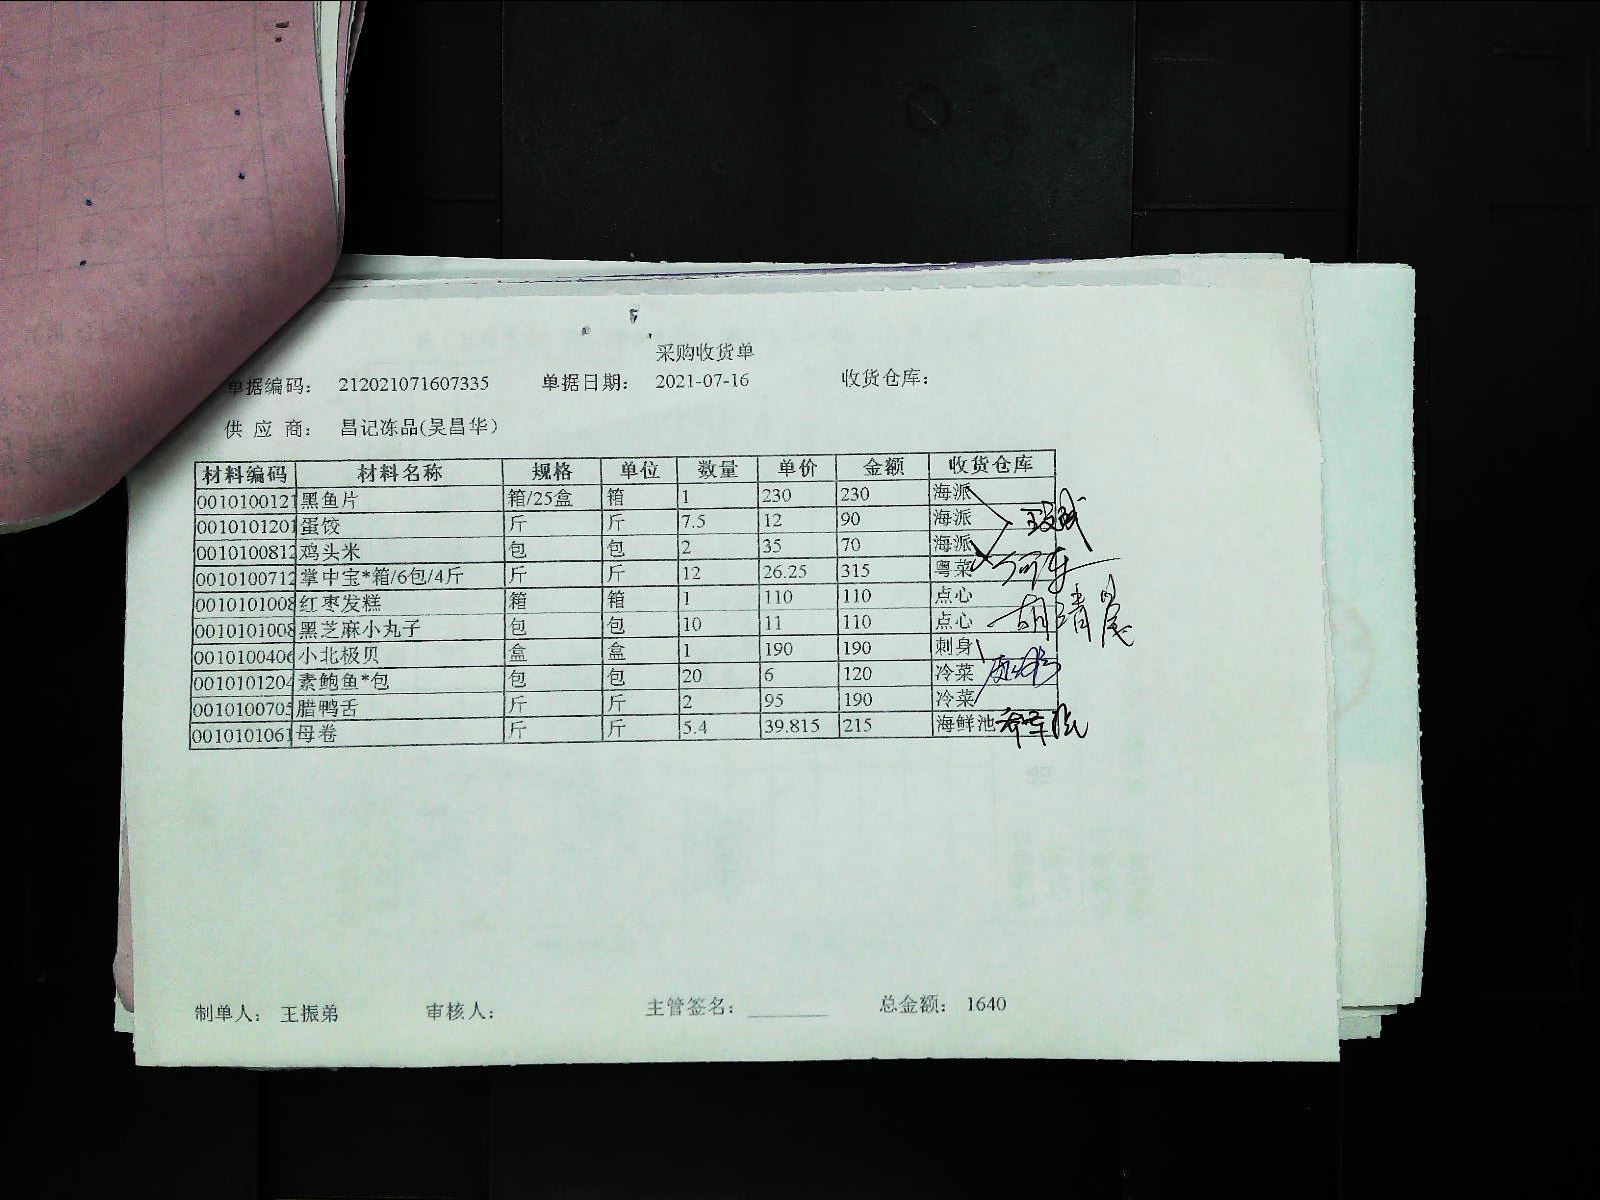 采购收货单
单据编码： 212021071607335 单据日期： 2021-07-16 收货仓库：
供 应 商： 昌记冻品(吴昌华)
材料编码 材料名称 规格 单位 数量 单价 金额 收货仓库
0010100121 黑鱼片 箱/25盒 箱 1 230 230 海派
0010101201 蛋饺 斤 斤 7.5 12 90 海派
0010100812 鸡头米 包 包 2 35 70 海派
0010100712 掌中宝*箱/6包/4斤 斤 斤 12 26.25 315 粤菜
0010101008 红枣发糕 箱 箱 1 110 110 点心
0010101008 黑芝麻小丸子 包 包 10 11 110 点心
0010100406 小北极贝 盒 盒 1 190 190 刺身
0010101204 素鲍鱼*包 包 包 20 6 120 冷菜
0010100705 腊鸭舌 斤 斤 2 95 190 冷菜
0010101061 母卷 斤 斤 5.4 39.815 215 海鲜池
制单人： 王振弟 审核人： 主管签名： 总金额： 1640